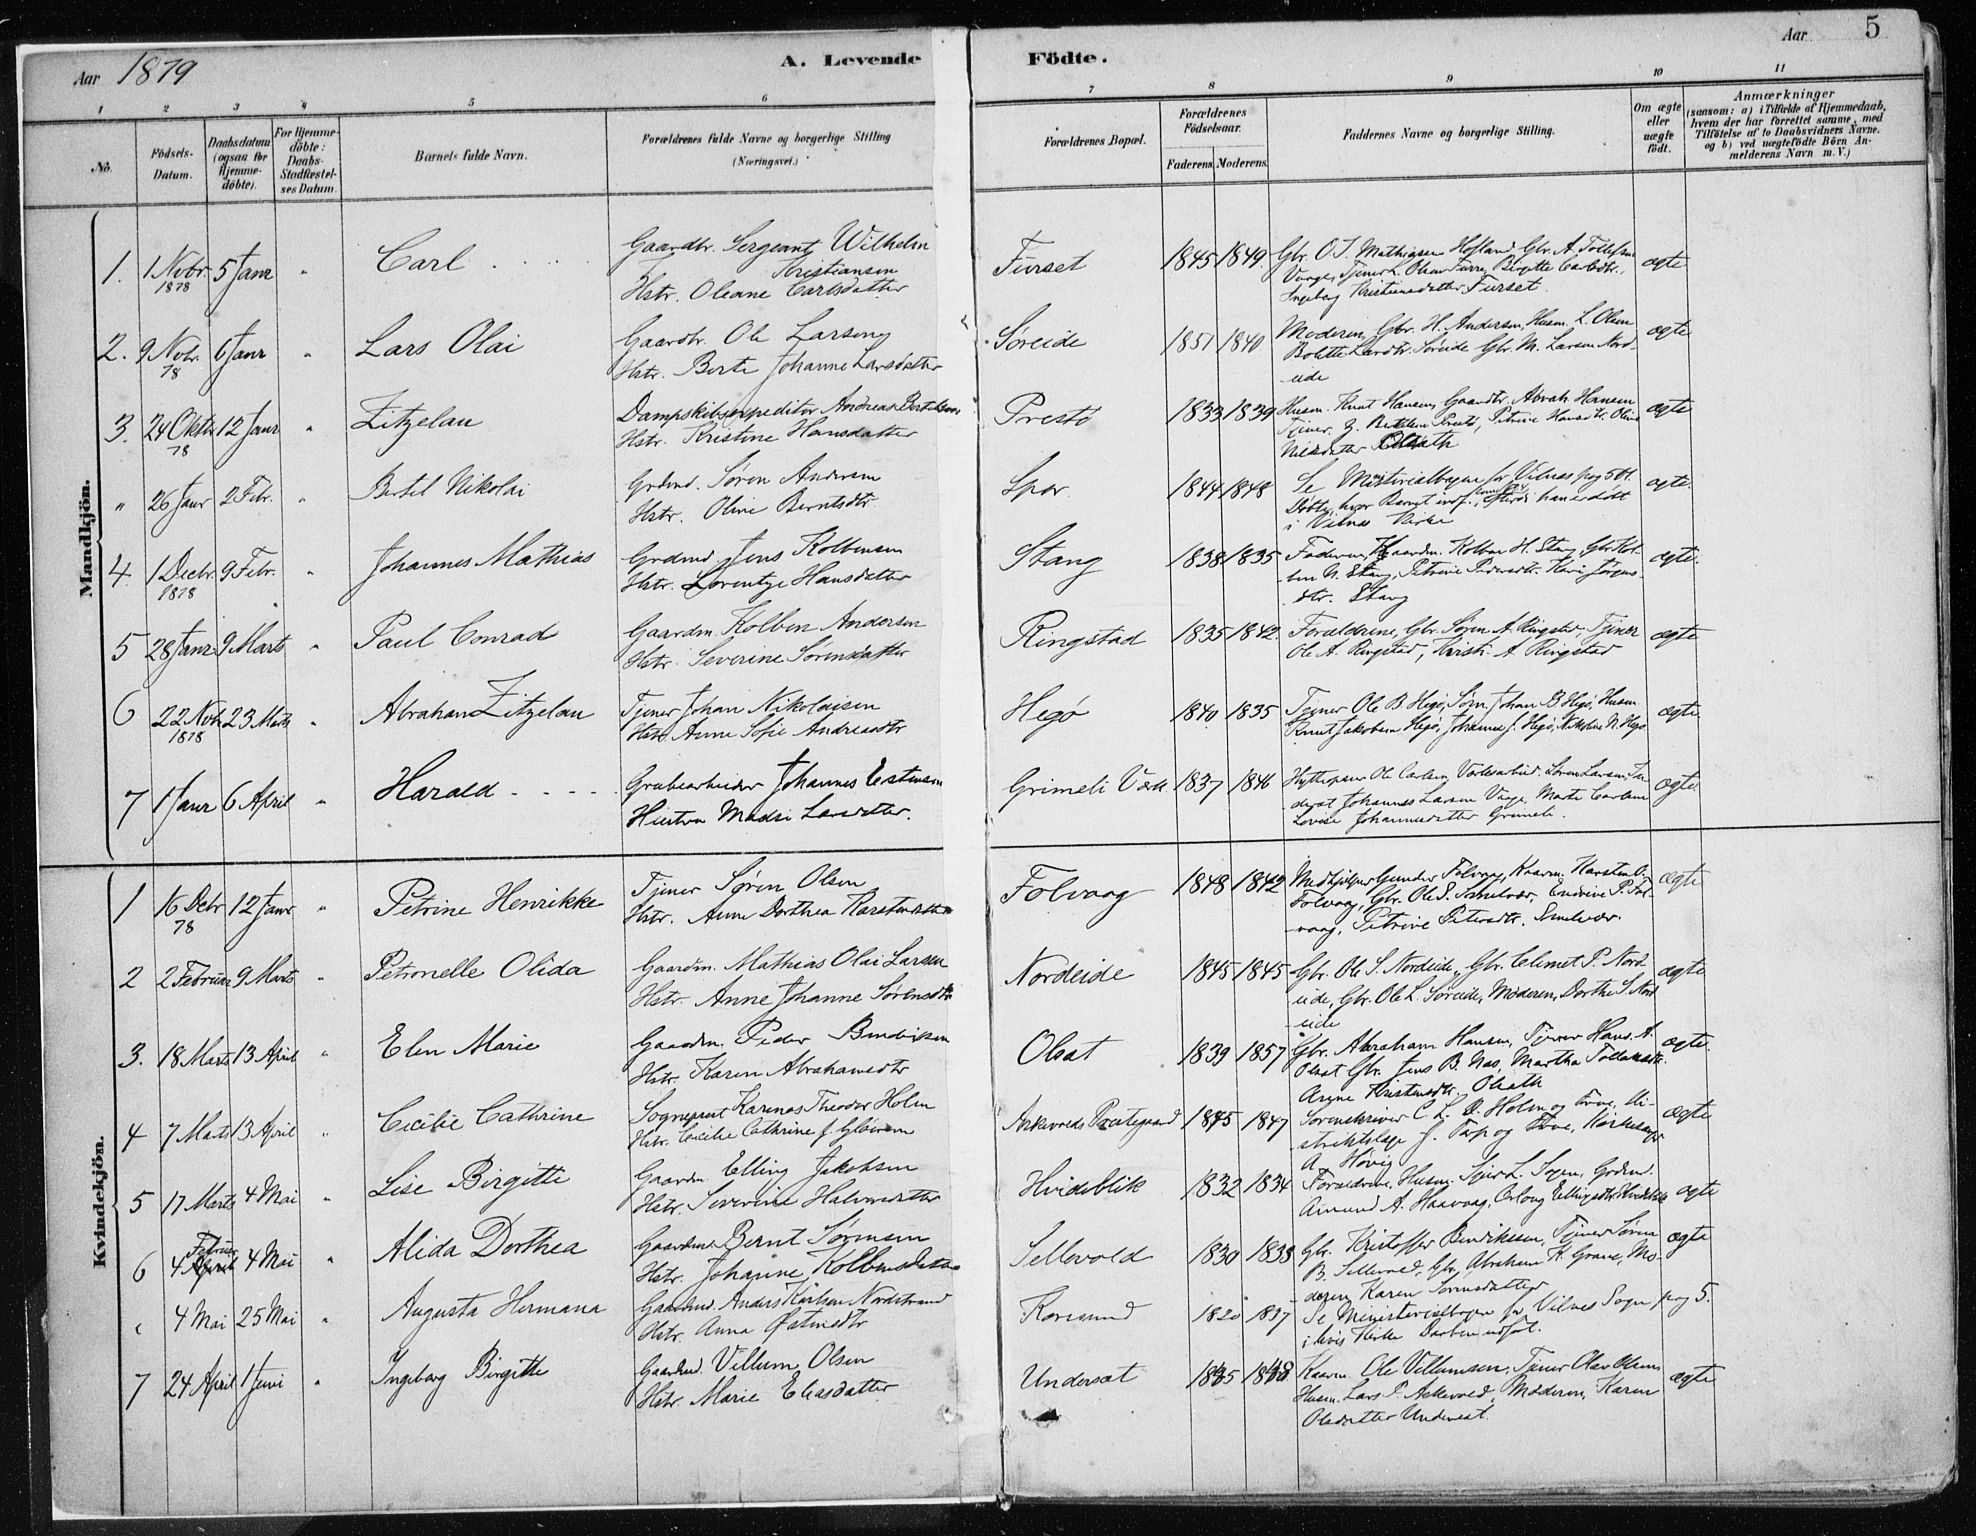 Aar 1879
A. Levende Födte.
Aar 5
1 2 3 4 5 6 7 8 9 10 11
No.
Födsels-Datum.
Daabsdatum (ogsaa for Hjemme-döbte).
For Hjemme-döbte: Daabs-Stadfæstel-ses Datum.
Barnets fulde Navn.
Forældrenes fulde Navne og borgerlige Stilling (Næringsvei.)
Forældrenes Bopæl.
Forældrenes Födselsaar.
Faderens. Moderens.
Faddernes Navne og borgerlige Stilling.
Om ægte eller uægte födt.
Anmærkninger
(saasom: a) i Tilfælde af Hjemmedaab,
hvem der har forrettet samme, med
Tilföielse af to Daabsvidners Navne.
og b) ved uægtefödte Börn An-
melderens Navn m. V.)
Mandkjön.
1. 1 Novbr. 1878 5 Janr " Carl
Gaardbr. Sergeant Wilhelm
Kristiansen
Hstr. Oleane Carlsdatter
Furset 1845 1849
Gbr. O. J. Mathiasen Hofland, Gbr. A. Tollefsen
Vaage, Tjener L. Olsen Furre, Birgitte Carlsdtr.,
Ingeborg Kristiansdatter Furset.
ægte
2. 9 Novbr. 78 6 Janr " Lars Olai
Gaardbr. Ole Larsen
Hstr. Berte Johanne Larsdatter
Søreide 1851 1840
Moderen, Gbr. H. Andersen, Husm. L. Olsen
Bolette Larsdtr. Søreide Gbr. M. Larsen Nord-
eide
ægte
3. 24 Oktbr 78 12 Janr " Zitzelau
Dampskibsexpeditør Andreas Bertelsen
Hstr. Kristine Hansdatter
Prestø 1833 1839
Husm. Knut Hansen, Gaardbr. Abrah. Hansen
Tjener Bertelsen Prestø, Petrine Hansdtr. Oline
Nilsdatter Olsath
ægte
" 26 Janr 2 Febr. " Bertel Nikolai
Grdmd. Søren Andersen
Hstr. Oline Berntsdtr.
Spor 1844 1848
Se Ministerialbogen for Vilnes pag 5
Døbte, hvor Barnet indf., efterdi han er døbt
i Vilnes Kirke
ægte.
4. 1 Decbr. 1878 9 Febr. " Johannes Mathias
Grdmd. Jens Kolbensen
Hstr. Lorentze Hansdatter
Stang 1838 1835
Faderen, Gaardm. Kolben H. Stang, Gbr. Kol-
ben N. Stang, Petrine Pedersdtr. Kari Jørgens-
dtr. Stang
ægte.
5 28 Janr 9 Marts " Paul Conrad
Gaardm. Kolben Andersen
Hstr. Severine Sørensdatter
Ringstad 1835 1842.
Forældrene, Gbr. Søren A. Ringstad, Tjener
Ole A. Ringstad, Kristi A. Ringstad
ægte
6 22 Novbr 1878 23 Marts " Abraham Zitzelau
Tjener Johan Nikolaisen
Hstr. Anne Sofie Andreasdtr
Hegø 1840 1835
Tjener Ole B. Hegø, Søfn. Johan B Hegø, Husm.
Knut Jakobsen Hegø, Johanne J. Hegø, Nikoline N. Hegø
ægte.
7 1 Janr 6 April " Harald
Grubearbeider Johannes Estensen
Hustru Madsi Larsdatter.
Grimeli Værk 1837 1846
Ole Carlsen, Værksarbeid. Søren Larsen,
Johannes Larsen Vaage, Marte Carlsen
Lovise Johannesdatter Grimeli.
ægte.
Kvindekjön.
1 16 Debr 78 12 Janr " Petrine Henrikke
Tjener Søren Olsen
Hstr. Anne Dorthea Karstensdatter
Folvaag 1848 1842
Medhjælper Gunder Folvaag, Kaarm. Karsten O.
Folvaag, Gbr. Ole S. Somelvær, Endrine P. Fol-
vaag, Petrine Petersdtr. Somelvær.
ægte
2 2 Februar 9 Marts " Petronelle Olida
Gaardm. Mathias Olai Larsen
Hstr. Anne Johanne Sørensdtr
Nordeide 1845 1845
Gbr. Ole S. Nordeide, Gbr. Clemet P. Nord-
eide, Gbr. Ole L. Søreide, Moderen, Dorthe S. Nord
-eide
ægte
3. 18 Marts 13 April " Elen Marie
Gaardm. Peder Bendiksen
Hstr. Karen Abrahamsdtr
Olsat 1839 1857
Gbr. Abraham Hansen, Tjener Hans A.
Olsat Gbr. Jens B. Nas, Martha Tollaksdtr.
Arene Kristensdtr. Olsath
ægte.
4 7 Marts 13 April " Cecilie Cathrine
Sogneprest Karenas Theodor Holm
Hstr. Cecilie Cathrine f.
Askevolds Prestegaard 1845 1847
Sorenskriver C. L. A. Holm og Frue, Di-
striktslæge J. Torp og Frue, Kirkesanger
A. Høvig
ægte
5 17 Marts 4 Mai " Lise Birgitte
Gaardm Elling Jakobsen
Hstr. Severine Halvorsdatter
Hvideblik 1832 1834
Forældrene, Husm. Sjur L. Sogn, Grdmd.
Amund A. Haavaag, Oslaug Ellingsdtr. Hvideblik
ægte
6 4 Februar April 4 Mai " Alida Dorthea
Gaardmd Bernt Sørensen
Hstr. Johanne Kolbensdatter
Sellevold 1830 1838
Gbr. Kristoffer Bendikssen, Tjener Søren
B. Sellevold, Gbr. Abraham K. Grave, Mo-
deren Karen Sørensdatter
ægte
" 4 Mai 25 Mai " Augusta Hermana
Gaardmd. Anders Karlsen Nordstrand
Hstr. Anna Østensdtr
Korssund 1820 1837
Se Ministerialbogen for Vilnes Sogn pag 5.
i hvis Kirke Daaben udført.
7 24 April 1 Juni " Ingeborg Birgitte
Gaardmd. Villum Olsen
Hstr. Marie Eliasdatter
Undersat 1835 1838
Kaarm. Ole Villumsen, Tjener Olav Olsen,
Husm. Lars P. Askevold, Moderen, Karen
Olsdatter Undersat.
ægte